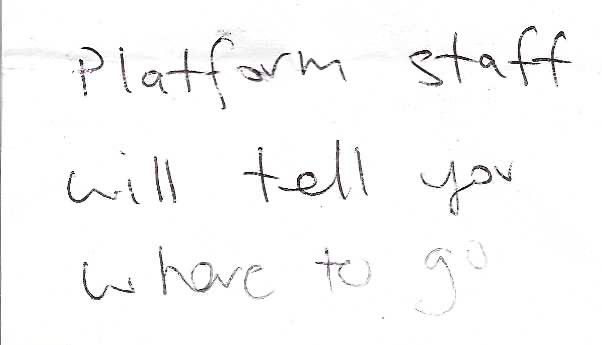 Platform staff
will tell you
where to go